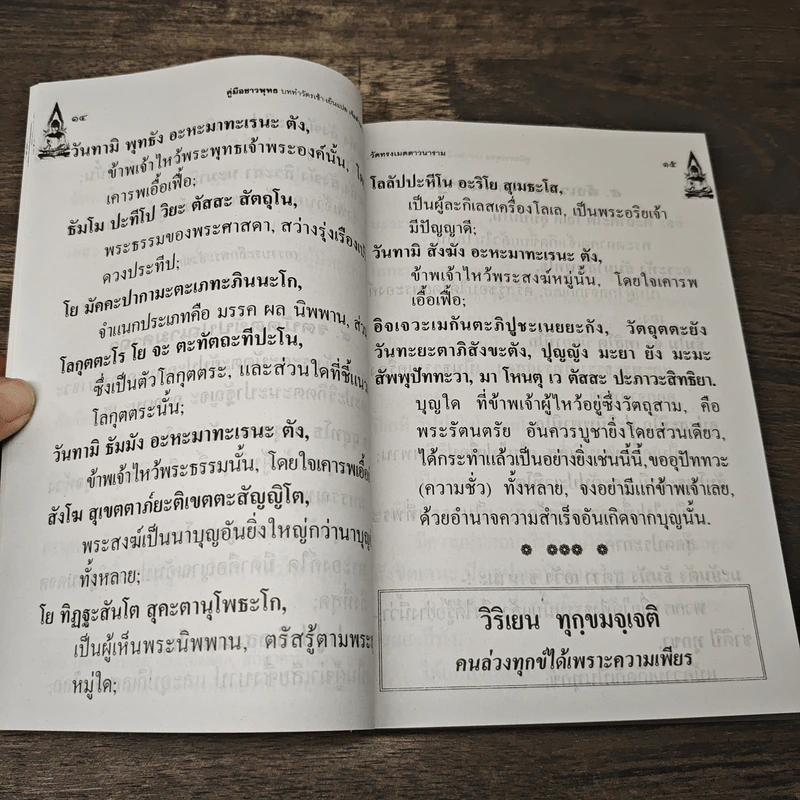 ๑๔
คู่มือชาวพุทธ บททำวัตรเช้า-เย็นแปล
วันทามิ พุทธัง อะหะมาทะเรนะ ตัง,
ข้าพเจ้าไหว้พระพุทธเจ้าพระองค์นั้น,
เคารพเอื้อเฟื้อ;
ธัมโม ปะทีโป วิยะ ตัสสะ สัตถุโน,
พระธรรมของพระศาสดา, สว่างรุ่งเรือง
ดวงประทีป;
โย มัคคะปากามะตะเภทะภินนะโก,
จำแนกประเภทคือ มรรค ผล นิพพาน,
โลกุตตะโร โย จะ ตะทัตถะทีปะโน,
ซึ่งเป็นตัวโลกุตตระ, และส่วนใดที่ชี้แนว
โลกุตตระนั้น;
วันทามิ ธัมมัง อะหะมาทะเรนะ ตัง,
ข้าพเจ้าไหว้พระธรรมนั้น, โดยใจเคารพ
สังโฆ สุเขตตาภ์ยะติเขตตะสัญญิโต,
พระสงฆ์เป็นนาบุญอันยิ่งใหญ่กว่านาบุญ
ทั้งหลาย;
โย ทิฏฐะสันโต สุคะตานุโพธะโก,
เป็นผู้เห็นพระนิพพาน, ตรัสรู้ตาม
หมู่ใด;
วัดทรงเมตตาวนาราม
๑๕
โลลัปปะหีโน อะริโย สุเมธะโส,
เป็นผู้ละกิเลสเครื่องโลเล, เป็นพระอริยเจ้า
มีปัญญาดี;
วันทามิ สังฆัง อะหะมาทะเรนะ ตัง,
ข้าพเจ้าไหว้พระสงฆ์หมู่นั้น, โดยใจเคารพ
เอื้อเฟื้อ;
อิจเจวะเมกันตะภิปูชะเนยยะกัง, วัตถุตตะยัง
วันทะยะตาภิสังขะตัง, ปุญญัง มะยา ยัง มะมะ
สัพพุปัททะวา, มา โหนตุ เว ตัสสะ ปะภาวะสิทธิยา.
บุญใด ที่ข้าพเจ้าผู้ไหว้อยู่ซึ่งวัตถุสาม, คือ
พระรัตนตรัย อันควรบูชายิ่งโดยส่วนเดียว,
ได้กระทำแล้วเป็นอย่างยิ่งเช่นนี้นี้,ขออุปัททวะ
(ความชั่ว) ทั้งหลาย, จงอย่ามีแก่ข้าพเจ้าเลย,
ด้วยอำนาจความสำเร็จอันเกิดจากบุญนั้น.
วิริเยน ทุกฺขมจฺเจติ
คนล่วงทุกข์ได้เพราะความเพียร